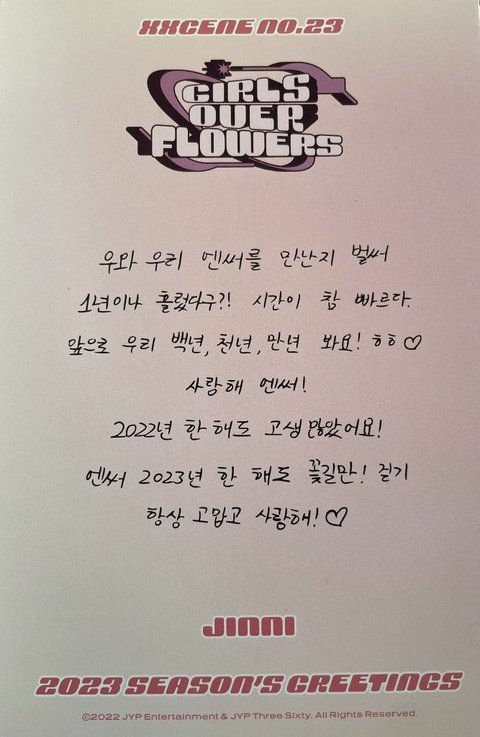 XXCENE NO.23
GIRLS
OVER
FLOWERS
우와 우리 엔써를 만난지 벌써
1년이나 흘렀다구?! 시간이 참 빠르다.
앞으로 우리 백년, 천년, 만년 봐요! ㅎㅎ♡
사랑해 엔써!
2022년 한 해도 고생 많았어요!
엔써 2023년 한 해도 꽃길만! 걷기
항상 고맙고 사랑해! ♡
JINNI
2023 SEASON'S GREETINGS
©2022 JYP Entertainment & JYP Three Sixty. All Rights Reserved.